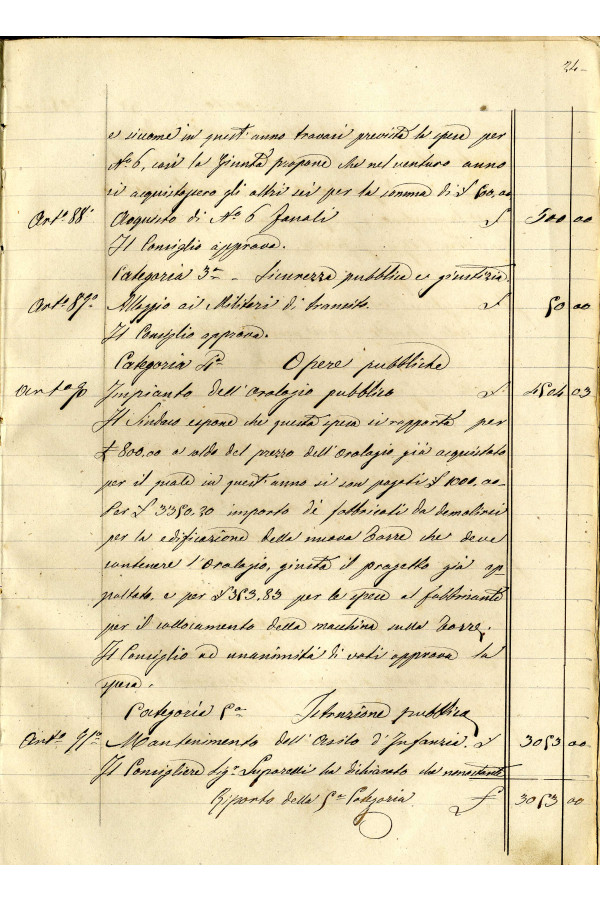 24
e siccome in quest'anno trovasi prevista la spesa per
N.º 6, così la Giunta propone che nel venturo anno
si acquistassero gli altri sei per la somma di £ 60,00
Art.º 88º Acquisto di N.º 6 Fanali £ 500 00
Il Consiglio approva.
Categoria 3ª - Sicurezza pubblica e giustizia
Art.º 89º Alloggio ai Militari di transito £ 50 00
Il Consiglio approva.
Categoria 4ª Opere pubbliche
Art.º 90 Impianto dell'orologio pubblico £ 4504 03
Il Sindaco espone che questa spesa si rapporta per
£ 800.00 a saldo del prezzo dell'orologio già acquistato
per il quale in quest'anno si son pagati £ 1000.00
Per £ 3350.20 importo de' fabbricati da demolirsi
per la edificazione della nuova Torre che deve
contenere l'orologio, giusta il progetto già ap-
paltato, e per £ 353.83 per le spese al fabbricante
per il collocamento della macchina sulla Torre.
Il Consiglio ad unanimità di voti approva la
spesa.
Categoria 5ª Istruzione pubblica
Art.º 91º Mantenimento dell'Asilo d'Infanzia. £ 3053 00
Il Consigliere Sig.r ha dichiarato che nonostante
Riporto della 5ª Categoria £ 3053 00